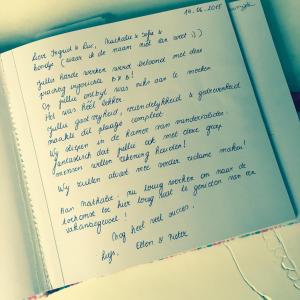 14.06.2015
Lieve Ingrid & Luc, Nathalie & Sofie &
hondje (waar ik de naam niet van weet :))
Jullie harde werken werd beloond met deze
prachtig ingerichte B&B!
Op jullie ontbijt was niks aan te merken
Het was heel lekker
Jullie gastvrijheid, vriendelijkheid & gedrevenheid
maakte dit plaatje compleet.
Wij sliepen in de kamer van mindervaliden
fantastisch dat jullie ook met deze groep
mensen willen rekening houden!
Wij zullen alvast mee verder reclame maken!
Aan Nathalie: nu terug werken en naar de
toekomst toe hier terug wat te genieten van een
vakantiegevoel!
Nog heel veel succes.
Liefs, Ellen & Pieter